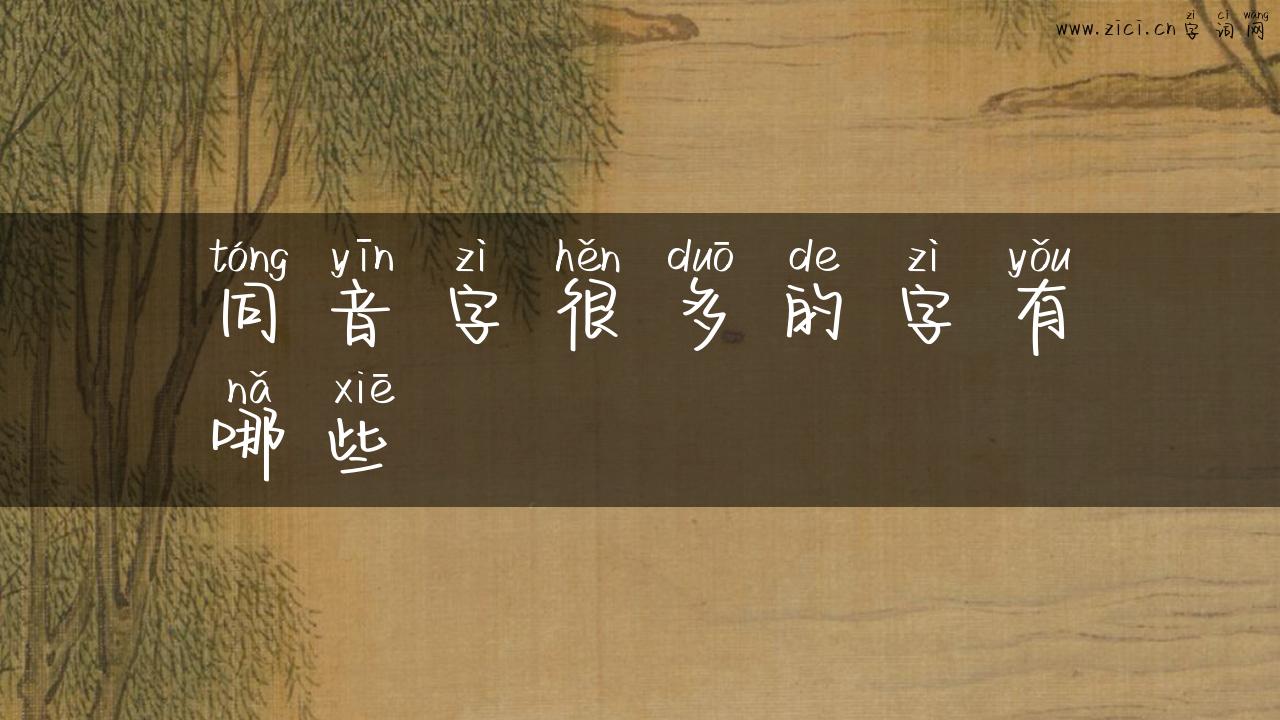 zì cí wǎng
www.zici.cn 字 词 网
tóng yīn zì hěn duō de zì yǒu
同 音 字 很 多 的 字 有
nǎ xiē
哪 些